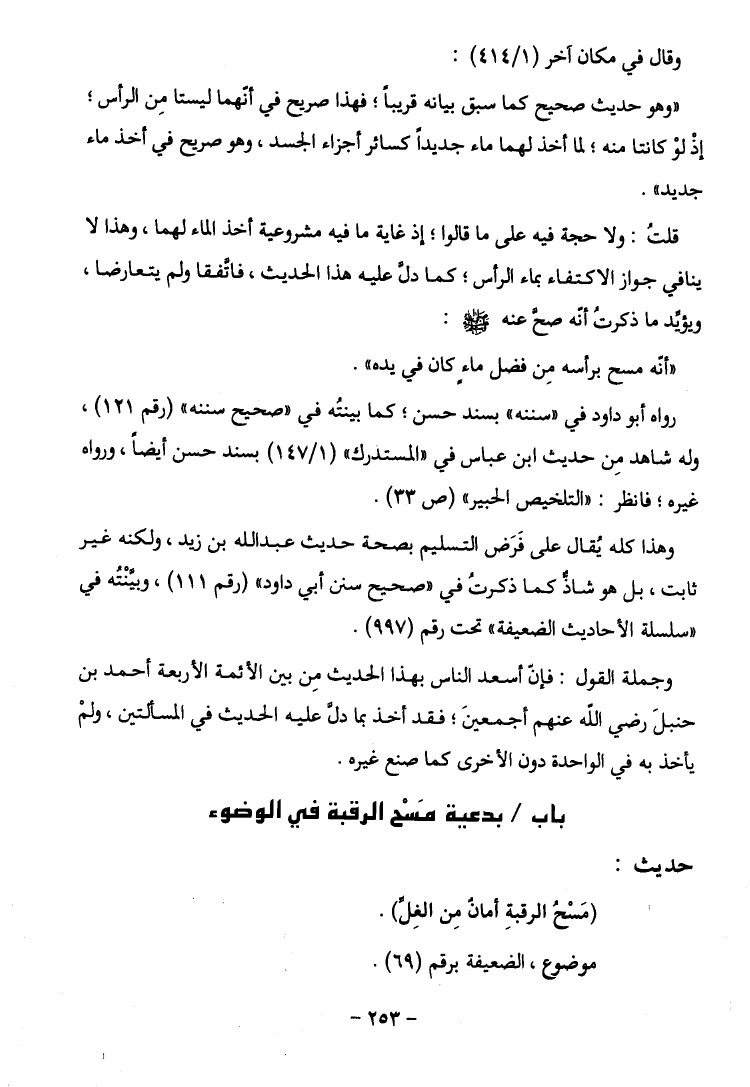 وقال في مكان آخر (٤١٤/١) :
«وهو حديث صحيح كما سبق بيانه قريباً ؛ فهذا صريح في أنّهما ليستا مِن الرأس ؛
إذْ لوْ كانتا منه ؛ لما أخذ لهما ماء جديداً كسائر أجزاء الجسد ، وهو صريح في أخذ ماء
جديد» .
قلتُ : ولا حجة فيه على ما قالوا ؛ إذ غاية ما فيه مشروعية أخذ الماء لهما ، وهذا لا
ينافي جواز الاكتفاء بماء الرأس ؛ كما دلَّ عليه هذا الحديث ، فاتَّفقا ولم يتعارضا ،
ويؤيِّد ما ذكرتُ أنّه صحَّ عنه ﷺ :
«أنّه مسح برأسه مِن فضل ماءٍ كان في يده» .
رواه أبو داود في «سننه» بسند حسن ؛ كما بينتُه في «صحيح سننه» (رقم ١٢١) ،
وله شاهد مِن حديث ابن عباس في «المستدرك» (١٤٧/١) بسند حسن أيضاً ، ورواه
غيره ؛ فانظر : «التلخيص الحبير» (ص ٣٣) .
وهذا كله يُقال على فَرَض التسليم بصحة حديث عبدالله بن زيد ، ولكنه غير
ثابت ، بل هو شاذٌّ كما ذكرتُ في «صحيح سنن أبي داود» (رقم ١١١) ، وبيَّنْتُه في
«سلسلة الأحاديث الضعيفة» تحت رقم (٩٩٧) .
وجملة القول : فإنّ أسعد الناس بهذا الحديث مِن بين الأئمة الأربعة أحمد بن
حنبلَ رضي اللّه عنهم أجمعينَ ؛ فقد أخذ بما دلَّ عليه الحديث في المسألتين ، ولمْ
يأخذ به في الواحدة دون الأخرى كما صنع غيره .
باب / بدعية مَسْح الرقبة في الوضوء
حديث :
(مَسْحُ الرقبةِ أمانٌ مِن الغِلِّ) .
موضوع ، الضعيفة برقم (٦٩) .
- ٢٥٣ -